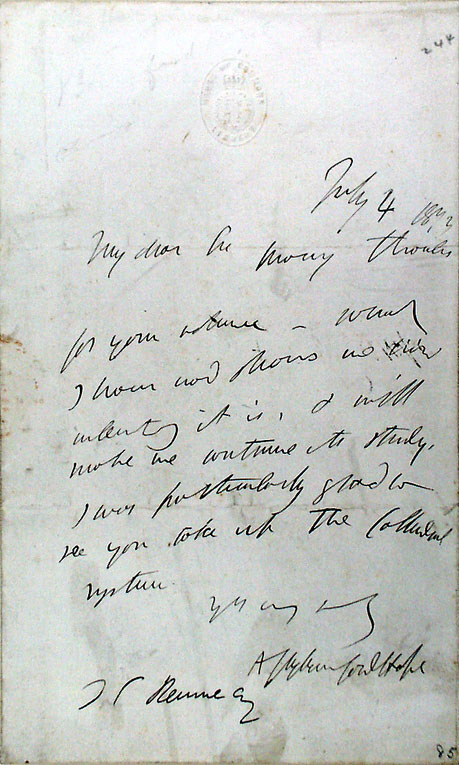 244
July 4 1872
My dear Sir Many thanks
for your volume – what
I have read shows me how
interesting it is, & will
make me continue its study.
I was particularly glad to
see you take up the Cathedral
system
Yrs very truly
A J B Beresford Hope
85